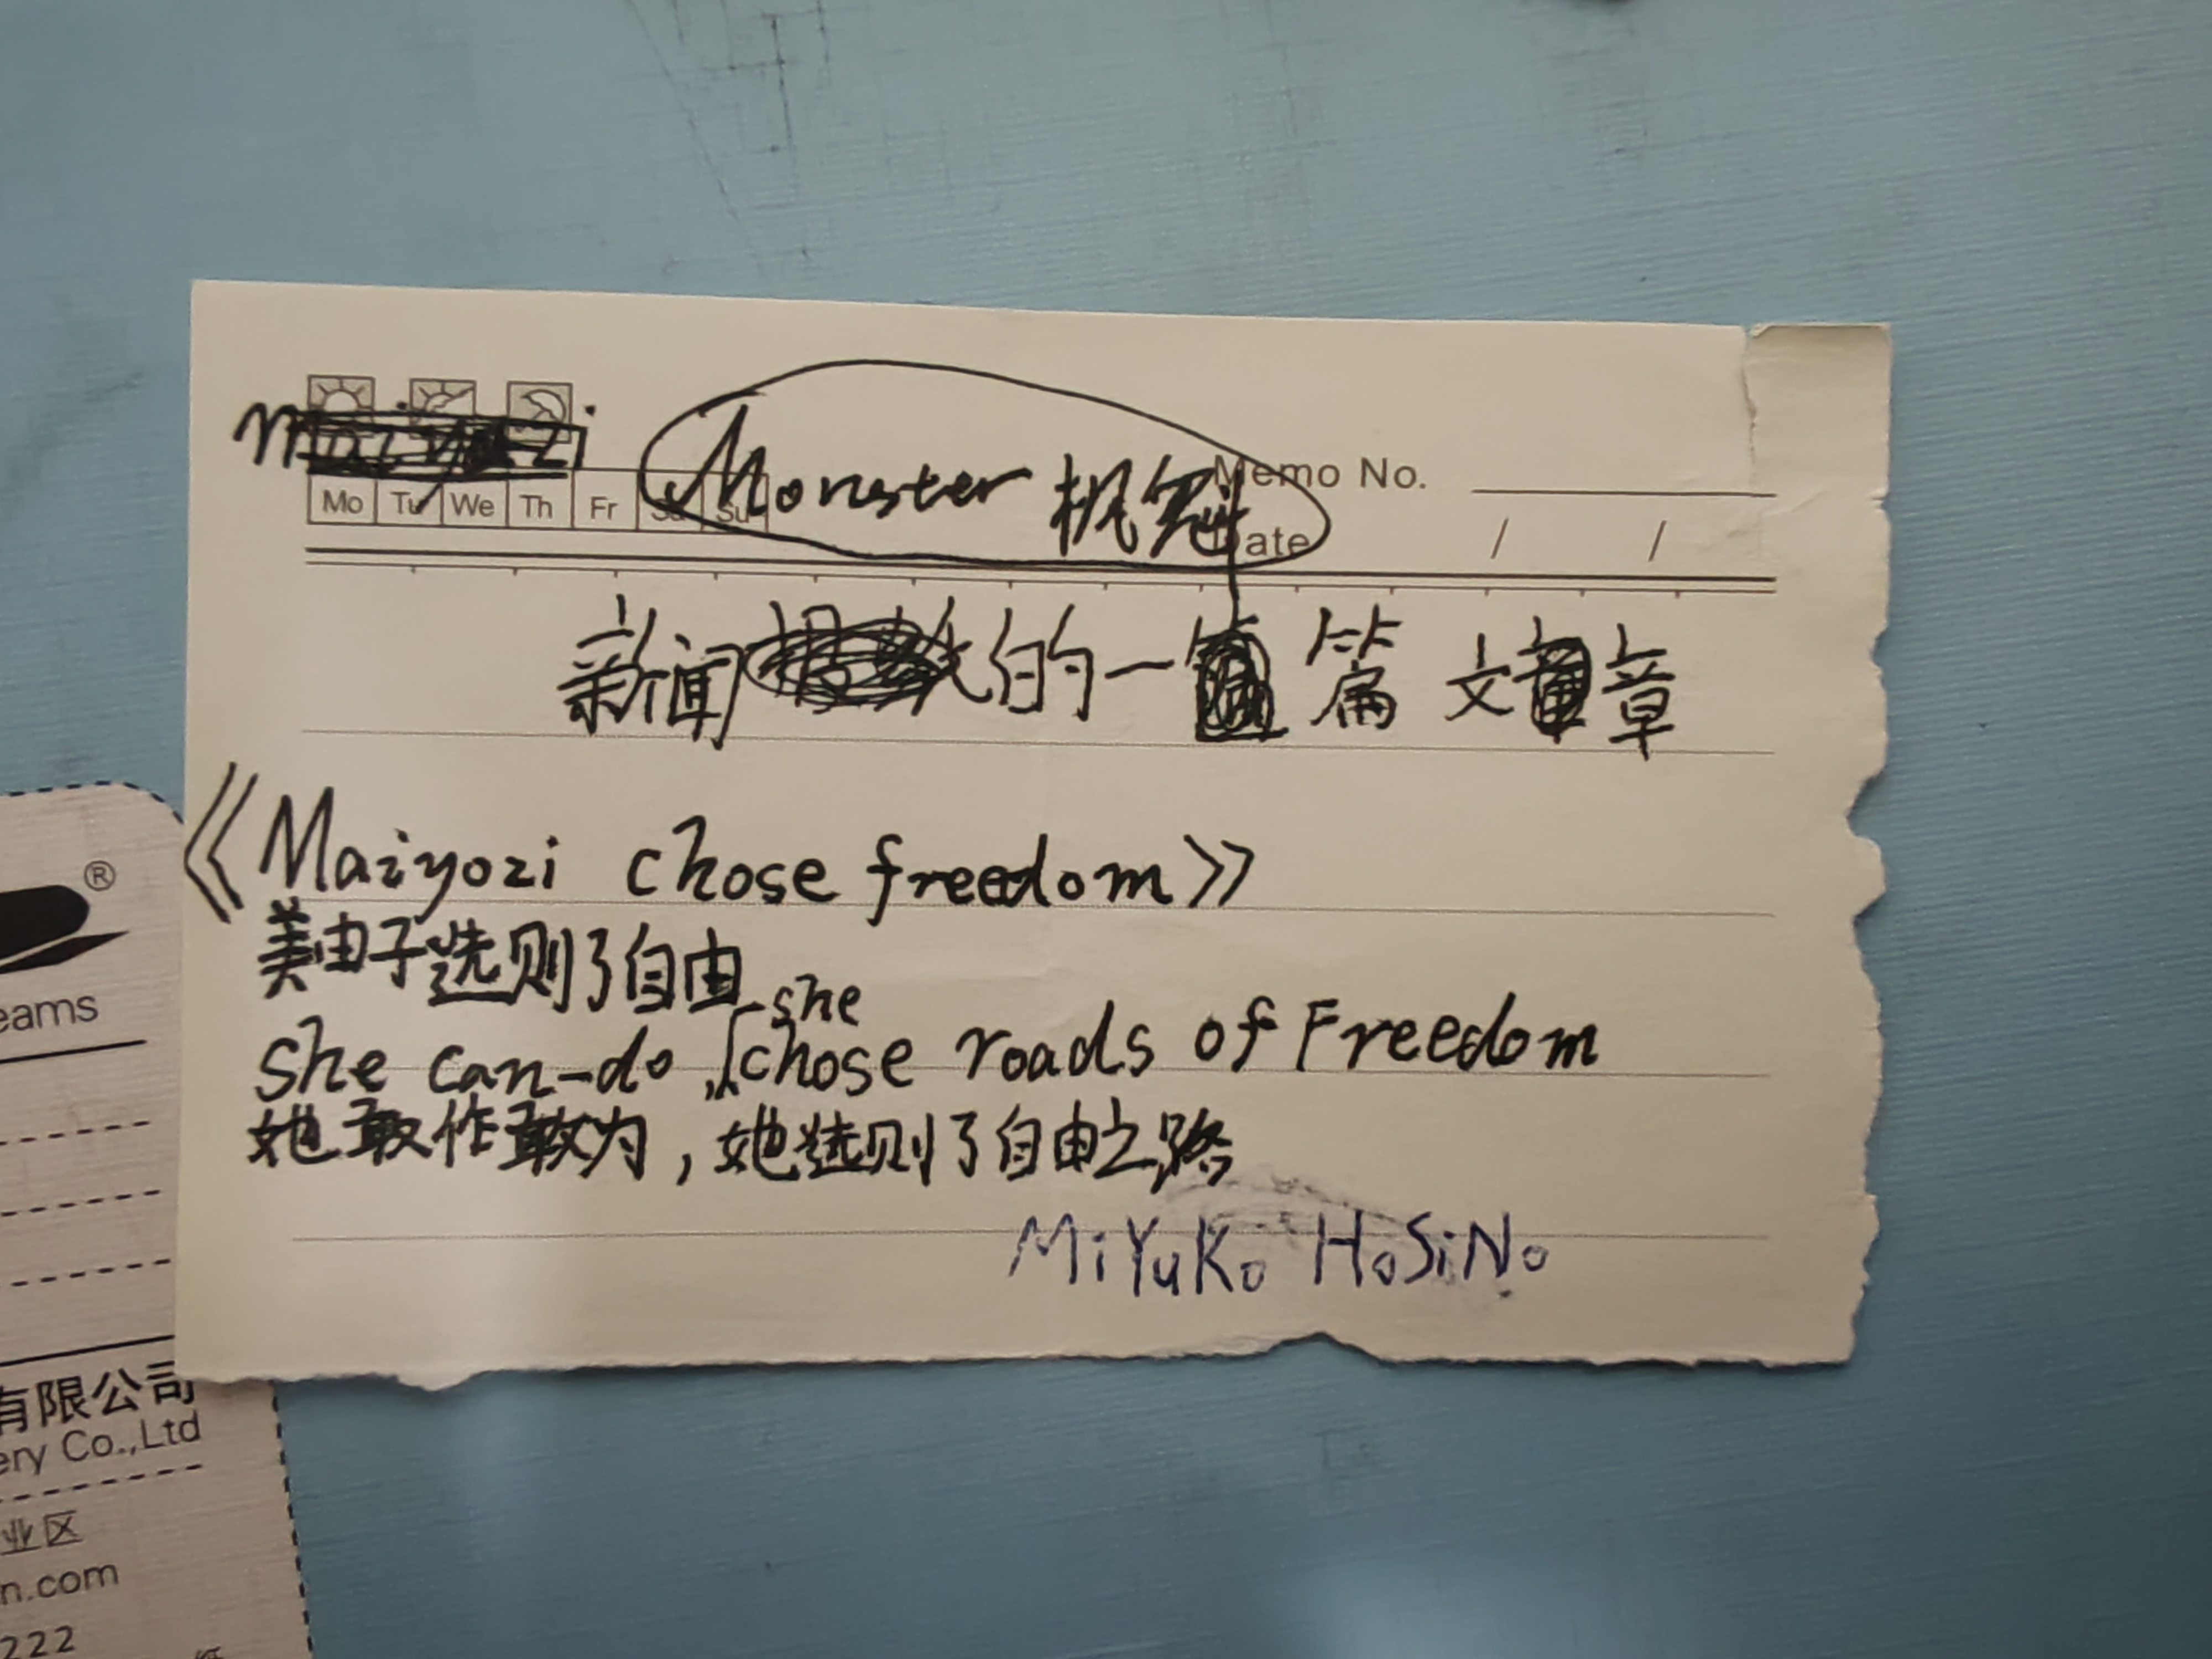 Maiyozi
Monster 机
Memo No.
Mo Tu We Th Fr Sa Su
Date / /
新闻 的一 篇 文 章
《Maiyozi chose freedom》
美由子选则了自由
she can-do, she chose roads of Freedom
她敢作敢为，她选则了自由之路
MiYuKo HoSiNo
®
eams
有限公司
ery Co.,Ltd
业区
n.com
222